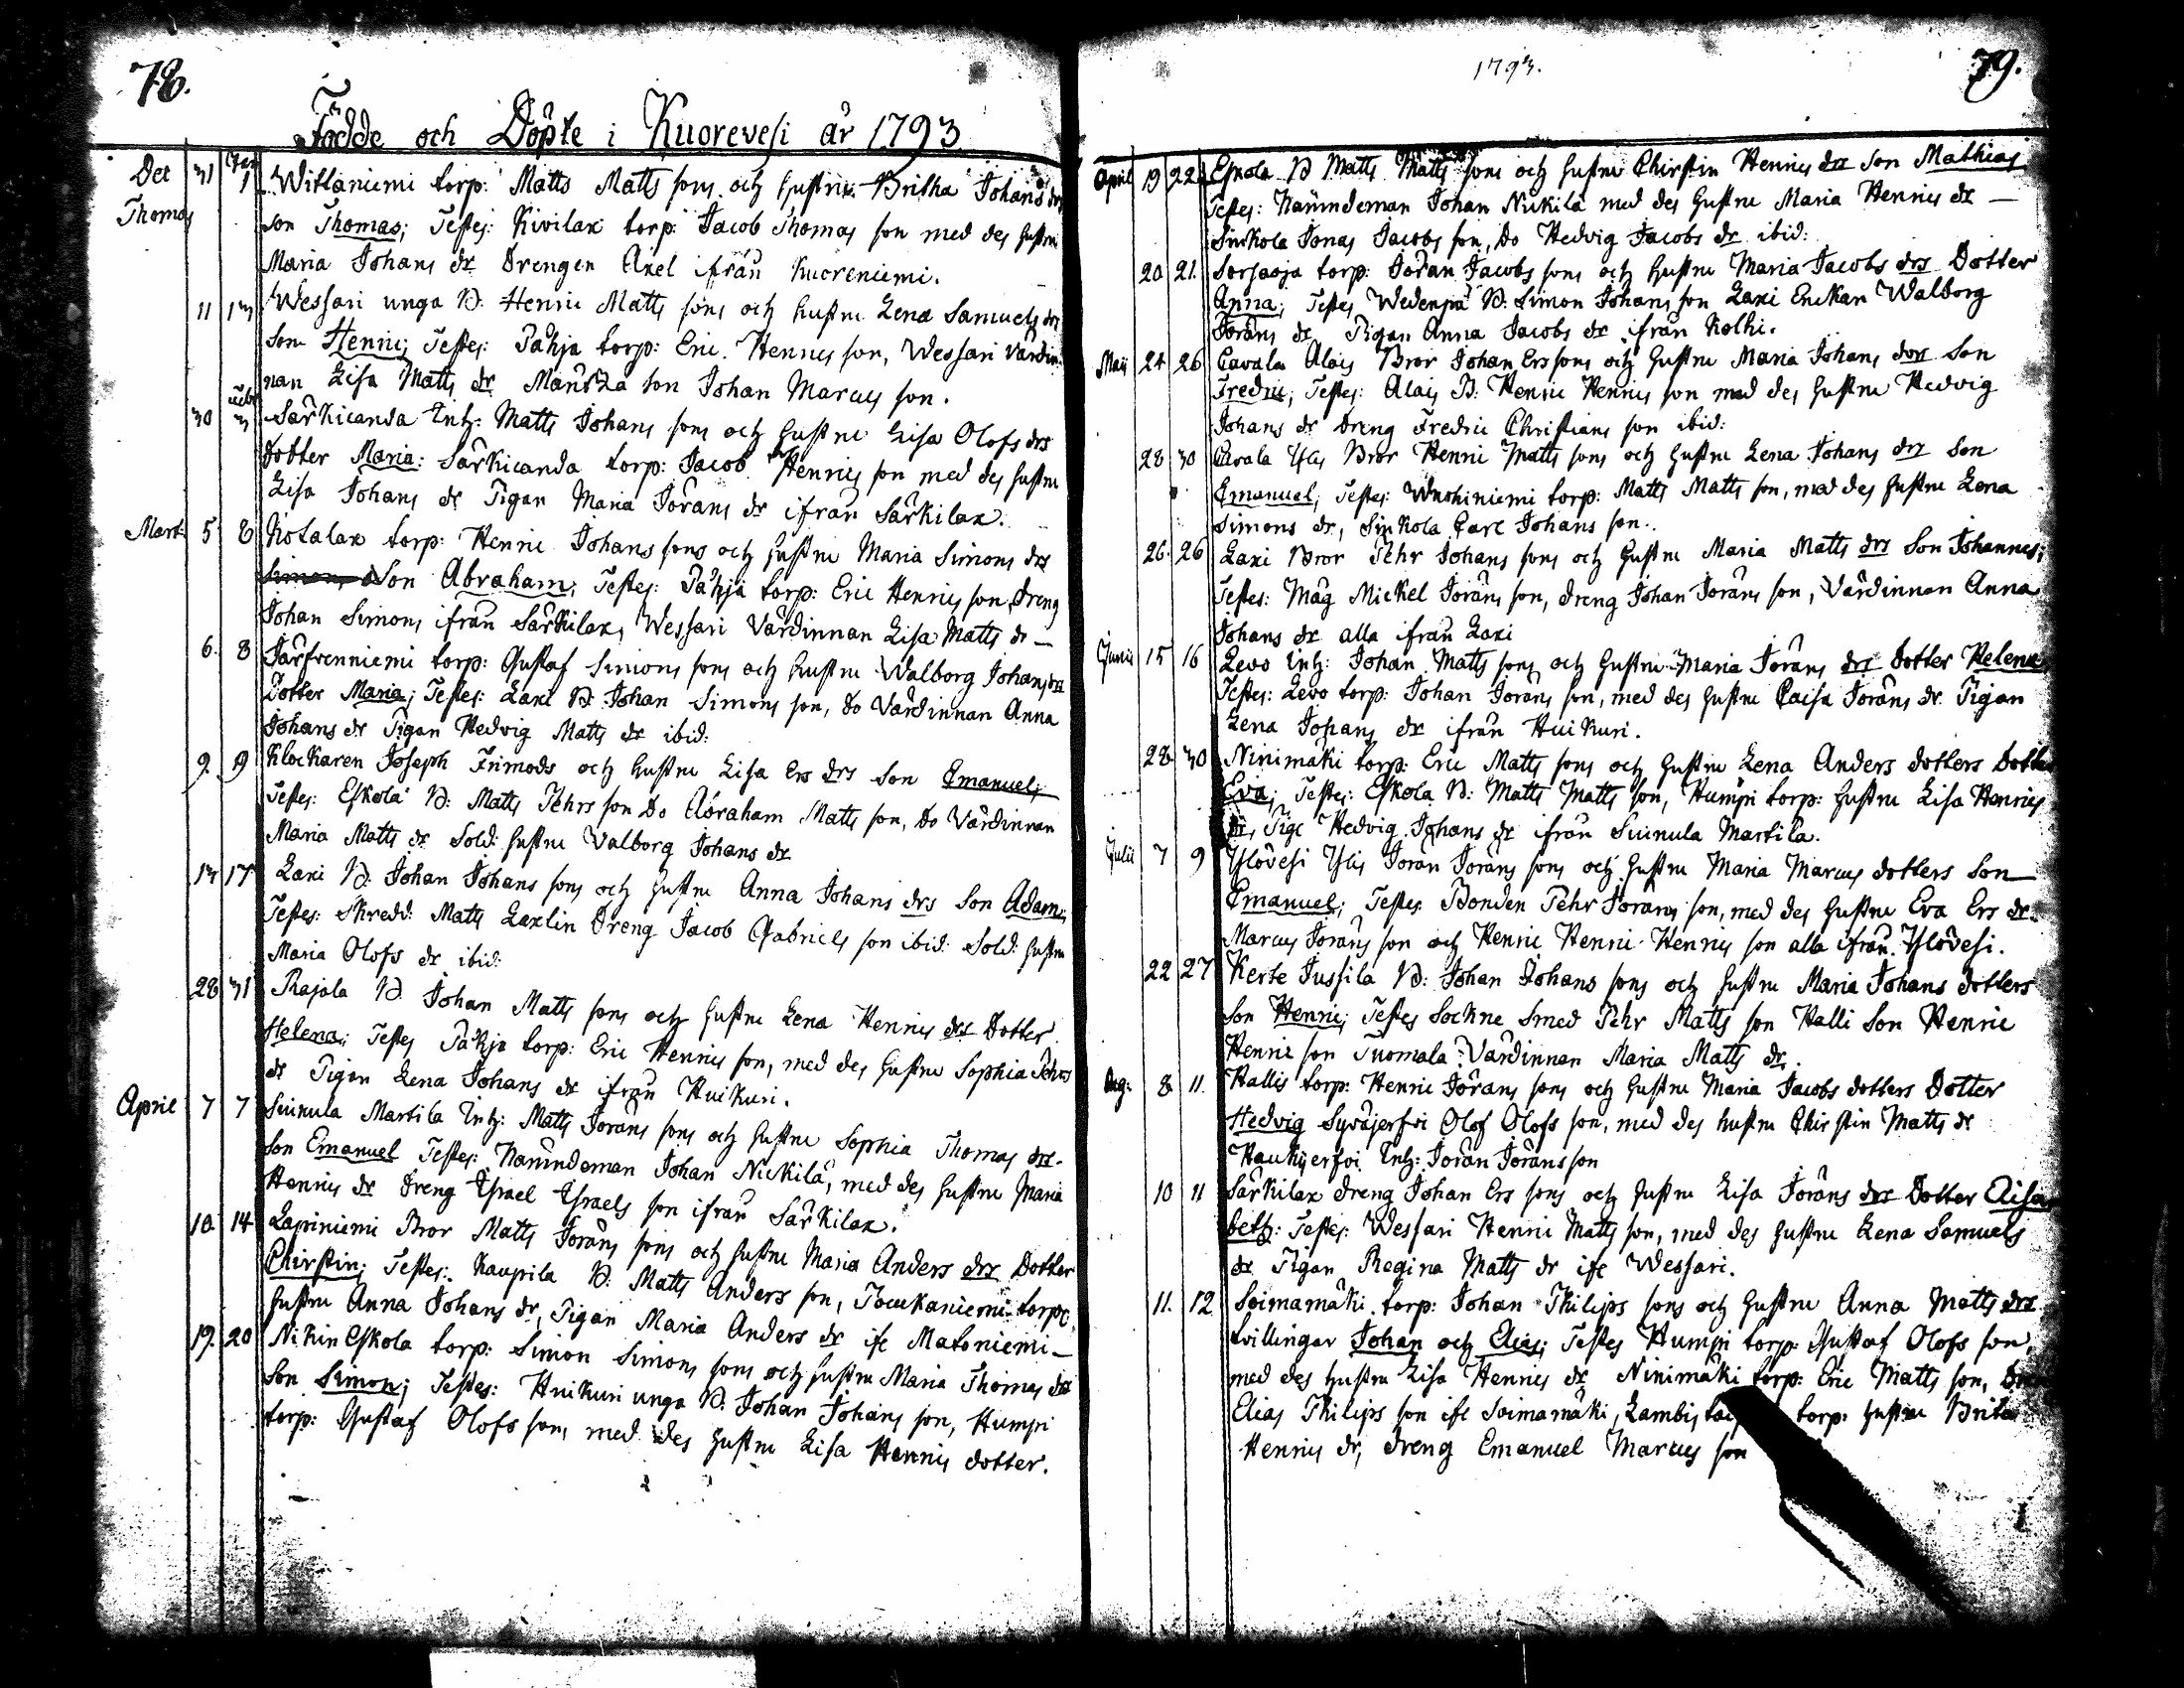 78.
Födde och Döpte i Kuorevesi år 1793
Dec 31 Jan 1 Wittaniemi torp: Matts Matts sons och hustrus Britha Johans drs
Thomas son Thomas; Testes: Kivilax torp: Jacob Thomas son med des hustru
Maria Johans dr Drengen Axel ifrån Kuoreniemi.
11 13 Wessari unga B: Henric Matts sons och hustru Lena Samuels drs
Son Henric; Testes: Påhja torp: Eric Henrics son, Wessari Värdin-
nan Lisa Matts dr son Johan Marcus son.
30 3 Särkicanda Inh: Matts Johans sons och hustru Lisa Olofs drs
Dotter Maria: Särkicanda torp: Jacob Henrics son med des hustru
Lisa Johans dr Pigan Maria Jörans dr ifrån Särkilax.
Mart: 5 8 Kotalax torp: Henric Johans sons och hustru Maria Simons drs
Son Abraham; Testes: Påhja torp: Eric Henrics son, dreng
Johan Simons ifrån Särkilax, Wessari Värdinnan Lisa Matts dr —
6. 8 Järfvenniemi torp: Gustaf Simons sons och hustru Walborg Johans drs
Dotter Maria; Testes: Laxi B: Johan Simons son, Do Värdinnan Anna
Johans dr Pigan Hedvig Matts dr ibid:
9. 9 Klockaren Joseph Frimods och hustru Lisa Ers drs Son Emanuel;
Testes: Eskola B: Matts Pehrs son Do Abraham Matts son, Do Värdinnan
Maria Matts dr Sold: hustru Valborg Johans dr
13 17 Laxi B: Johan Johans sons och hustru Anna Johans drs Son Adam;
Testes: Skredd: Matts Laxlin Dreng Jacob Gabriels son ibid: Sold: hustru
Maria Olofs dr ibid:
28 31 Rajala B: Johan Matts sons och hustru Lena Henrics drs Dotter
Helena; Testes Påhja torp: Eric Henrics son, med des hustru Sophia Pehrs
dr Pigan Lena Johans dr ifrån Huikuri.
April 7 7 Suinula Martila Inh: Matts Jörans sons och hustru Sophia Thomas drs
Son Emanuel Testes: Nämndeman Johan Nickilä, med des hustru Maria
Henrics dr dreng Israel Israels son ifrån Särkilax.
10. 14 Lapiniemi Bror Matts Jörans sons och hustru Maria Anders drs Dotter
Chirstin; Testes: Kaupila B: Matts Anders son, torps
hustru Anna Johans dr, Pigan Maria Anders dr ifr Matoniemi —
19. 20 Eskola torp: Simon Simons sons och hustru Maria Thomas drs
Son Simon; Testes: Huikuri unga B: Johan Johans son, Humpi
torp: Gustaf Olofs son, med des hustru Lisa Henrics dotter.
1793.
79.
April 19 22. Eskola B Matts Matts sons och hustru Chirstin Henrics drs Son Mathias
Testes: Nämndeman Johan Nickilä med des hustru Maria Henrics dr —
Sinkola Jonas Jacobs son, Do Hedvig Jacobs dr ibid:
20. 21. Sorsaoja torp: Jöran Jacobs sons och hustru Maria Jacobs drs Dotter
Anna; Testes B: Simon Johans son Laxi Enckan Walborg
Jörans dr Pigan Anna Jacobs dr ifrån Kolhi.
Maij 24 26 Pavala Alais Bror Johan Ers sons och hustru Maria Johans drs Son
Fredric; Testes: Alais B: Henric Henrics son med des hustru Hedvig
Johans dr dreng Fredric Christians son ibid:
28 30 Pavala Ylis Bror Henric Matts sons och hustru Lena Johans drs Son
Emanuel; Testes: torp: Matts Matts son, med des hustru Lena
Simons dr, Sinkola Carl Johans son.
26. 26 Laxi Bror Pehr Johans sons och hustru Maria Matts drs Son Johannes;
Testes: Måg Mickel Jörans son, dreng Johan Jörans son, Värdinnan Anna
Johans dr alla ifrån Laxi
Junii 15 16 Levo Inh: Johan Matts sons och hustru Maria Jörans drs Dotter Helena
Testes: Levo torp: Johan Jörans son, med des hustru Caisa Jörans dr. Pigan
Lena Johans dr ifrån Huikuri.
28. 30 Ninimäki torp: Eric Matts sons och hustru Lena Anders dotters Dotter
Eva; Testes: Eskola B: Matts Matts son, Humpi torp: hustru Lisa Henrics
dr, Pige Hedvig Johans dr ifrån Suinula Martila.
Julii 7 9 Ylövesi Ylis Jöran Jörans sons och hustru Maria Marcus dotters Son
Emanuel; Testes Bonden Pehr Jörans son, med des hustru Eva Ers dr.
Marcus Jörans son och Henric Henric Henrics son alla ifrån Ylövesi.
22 27 Kerte Jussila B: Johan Johans sons och hustru Maria Johans dotters
Son Henric; Testes Sockne Smed Pehr Matts son Halli Son Henric
Henric son Tuomala Värdinnan Maria Matts dr.
Aug: 8 11. Hallis torp: Henric Jörans sons och hustru Maria Jacobs dotters Dotter
Hedvig Syväjerfvi Olof Olofs son, med des hustru Chirstin Matts dr
Haukijerfvi Inh: Jöran Jörans son
10 11 Särkilax dreng Johan Ers sons och hustru Lisa Jörans drs Dotter Elisa
beth: Testes: Wessari Henric Matts son, med des hustru Lena Samuels
dr Pigan Regina Matts dr ifr Wessari.
11. 12 Soimamäki torp: Johan Philips sons och hustru Anna Matts drs
tvillingar Johan och Elias; Testes Humpi torp: Gustaf Olofs son,
med des hustru Lisa Henrics dr Ninimäki torp: Eric Matts son,
Elias Philips son ifr Soimamäki, torp: hustru Brita
Henrics dr, dreng Emanuel Marcus son